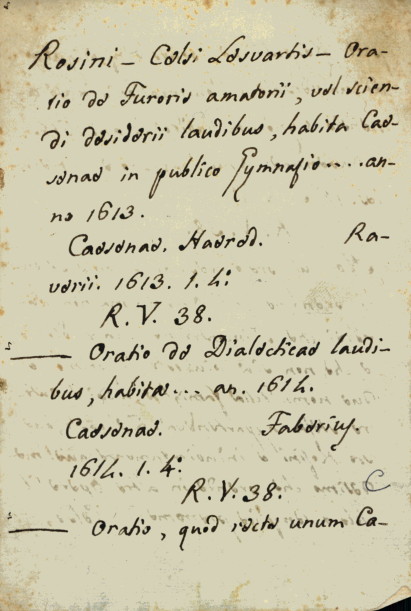 Rosini - Celsi Lesvartis - Ora-
tio de Furoris amatorii, vel scien-
di desiderii laudibus, habita Cae-
senae in publico Gymnasio.... an-
no 1613.
Caesenae. Haered. Ra-
verii. 1613. 1. 4:
R. V. 38.
— Oratio de Dialecticae laudi-
bus, habita... an. 1614.
Caesenae. Faberius.
1614. 1. 4:
R. V. 38. C
— Oratio, quod recte unum Ca-